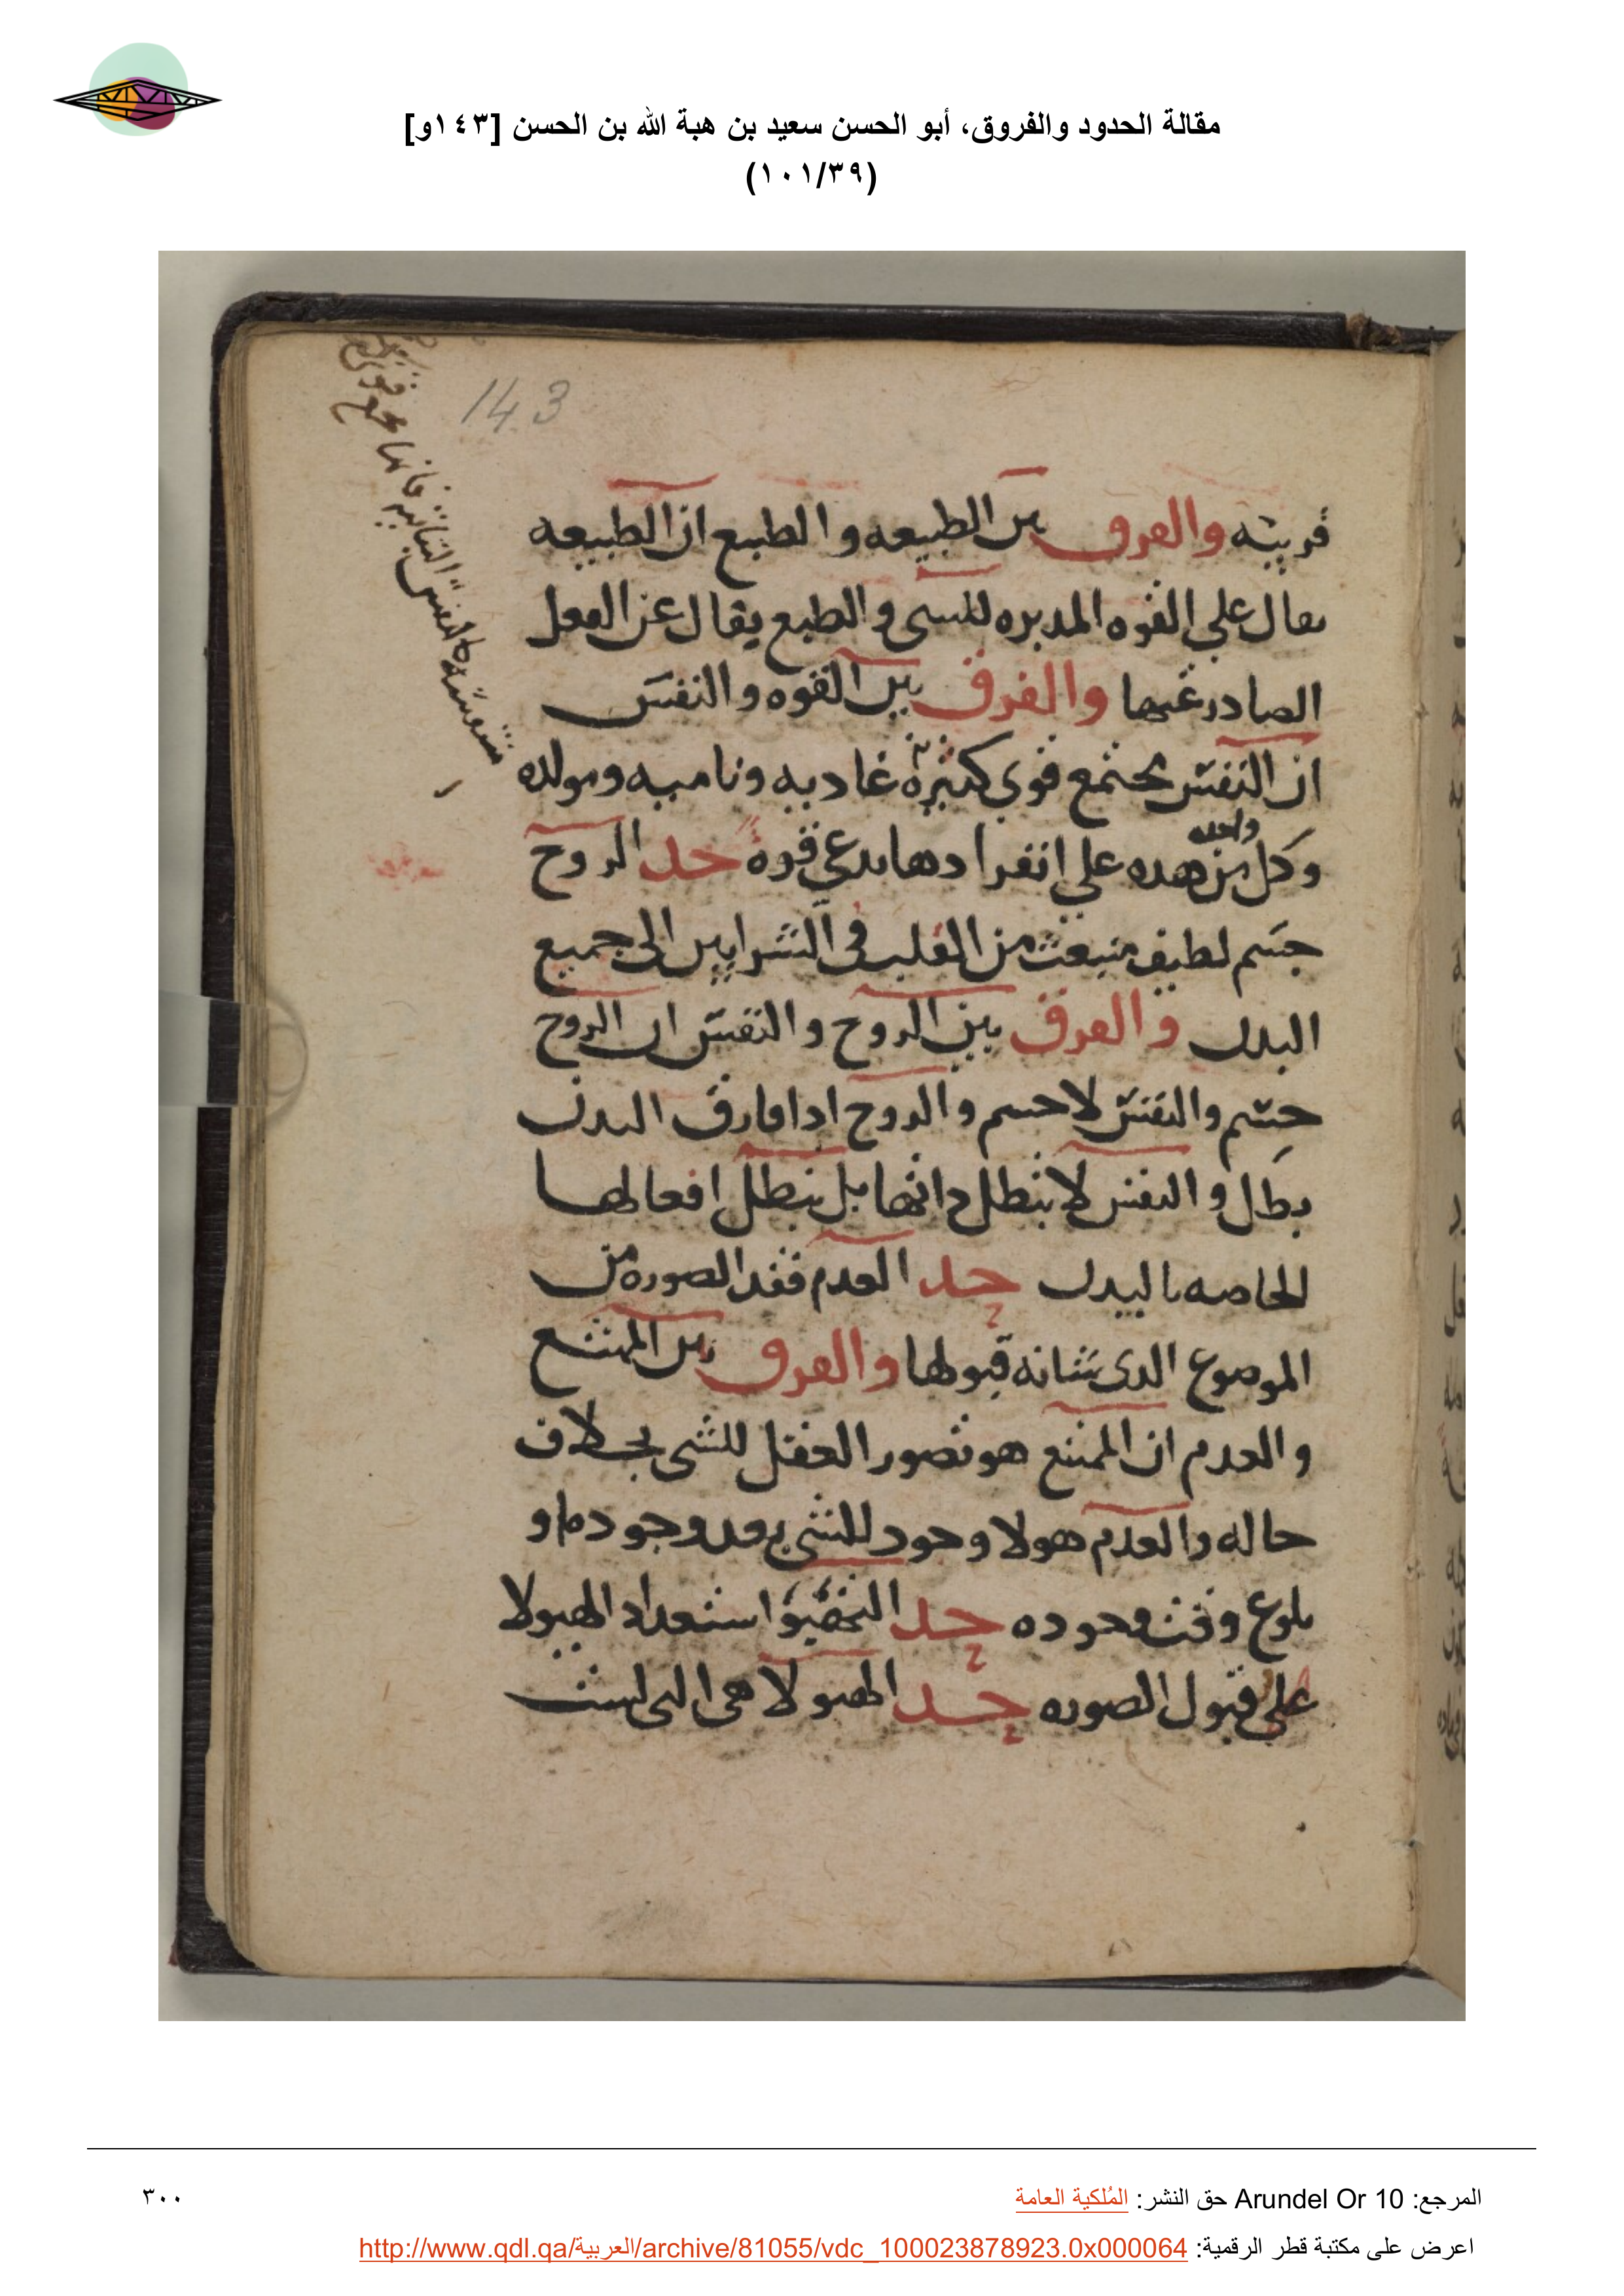 مقالة الحدود والفروق، أبو الحسن سعيد بن هبة الله بن الحسن [١٤٣و]
(١٠١/٣٩)
143
قريبه والفرق بين الطبيعه والطبع ان الطبيعه
يقال علي القوه المدبره للشى والطبع يقال عن الفعل
الصادر عنها والفرق بين القوه والنفس
ان النفس يجتمع قوي كثيرة غاديه وناميه ومولده
وكل واحده من هده علي انفرادها يدعي قوه حد الروح
جسم لطيف منبعث من القلب في الشرايين الى جميع
البدن والفرق بين الروح والنفس ان الروح
جسم والنفس لا جسم والروح ادا فارق البدن
بطل والنفس لا يبطل داتها بل يبطل افعالها
الخاصه بالبدن حد العدم فقد الصوره من
الموضوع الدى شانه قبولها والفرق بين الممتنع
والعدم ان الممتنع هو تصور العقل للشى بخلاف
حاله والعدم هو لا وجود للشي بعد وجوده او
بلوغ وقت وجوده حد التهيؤ استعداد الهيولا
علي قبول الصوره حد الهيولا هى التى ليست
المرجع: Arundel Or 10 حق النشر: المُلكية العامة
٣٠٠
اعرض على مكتبة قطر الرقمية: http://www.qdl.qa/العربية/archive/81055/vdc_100023878923.0x000064